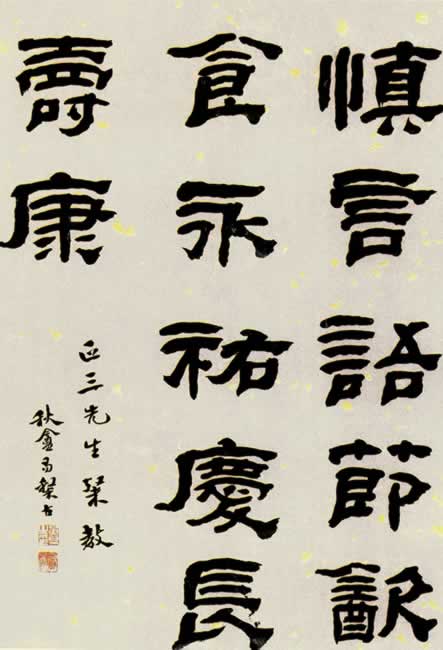 慎言語節飲
食永祐慶長
壽康
正三先生教
秋盦